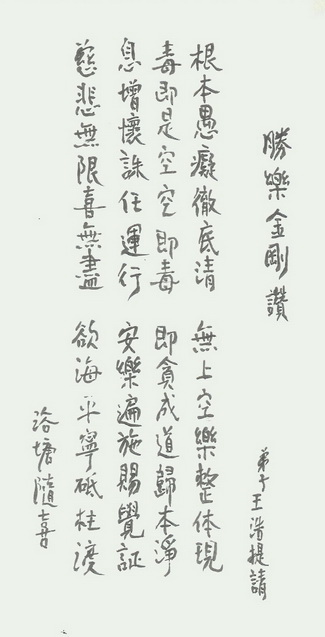 勝樂金剛讚
弟子王浩提請
根本愚癡徹底清 無上空樂整体現
毒即是空空即毒 即貪成道歸本淨
息增懷誅任運行 安樂遍施賜覺証
慈悲無限喜無盡 欲海平寧砥柱渡
洛塘隨喜